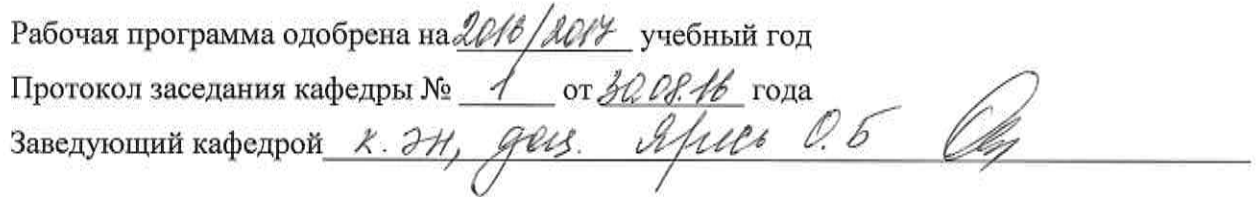 Рабочая программа одобрена на 2016/2017 учебный год
Протокол заседания кафедры № 1 от 30.08.16 года
Заведующий кафедрой к.эн, доц. Ярись О.Б